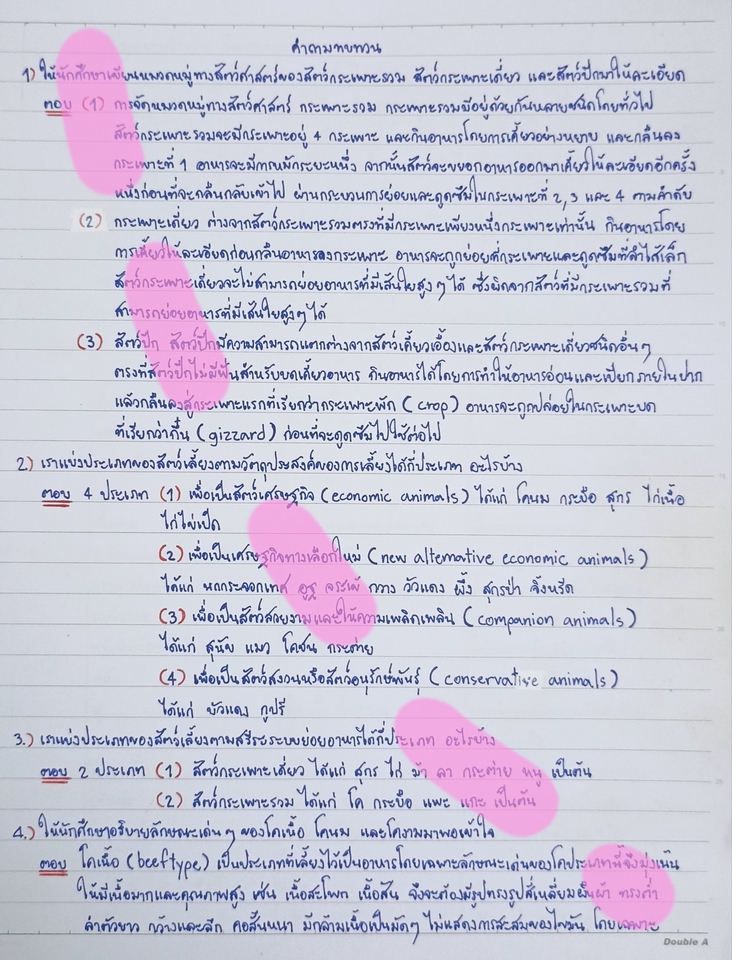 คำถามทบทวน
1) ให้นักศึกษาเขียนหมวดหมู่ทางสัตว์ศาสตร์ของสัตว์กระเพาะรวม สัตว์กระเพาะเดี่ยว และสัตว์ปีกมาให้ละเอียด
ตอบ (1) การจัดหมวดหมู่ทางสัตว์ศาสตร์ กระเพาะรวม กระเพาะรวมมีอยู่ด้วยกันหลายชนิดโดยทั่วไป
สัตว์กระเพาะรวมจะมีกระเพาะอยู่ 4 กระเพาะ และกินอาหารโดยการเคี้ยวอย่างหยาบ และกลืนลง
กระเพาะที่ 1 อาหารจะมีการหมักระยะหนึ่ง จากนั้นสัตว์จะขยอกอาหารออกมาเคี้ยวให้ละเอียดอีกครั้ง
หนึ่งก่อนที่จะกลืนกลับเข้าไป ผ่านกระบวนการย่อยและดูดซึมในกระเพาะที่ 2, 3 และ 4 ตามลำดับ
(2) กระเพาะเดี่ยว ต่างจากสัตว์กระเพาะรวมตรงที่มีกระเพาะเพียงหนึ่งกระเพาะเท่านั้น กินอาหารโดย
การเคี้ยวให้ละเอียดก่อนกลืนอาหารลงกระเพาะ อาหารจะถูกย่อยที่กระเพาะและดูดซึมที่ลำไส้เล็ก
สัตว์กระเพาะเดี่ยวจะไม่สามารถย่อยอาหารที่มีเส้นใยสูงๆได้ ซึ่งผิดจากสัตว์ที่มีกระเพาะรวมที่
สามารถย่อยอาหารที่มีเส้นใยสูงๆได้
(3) สัตว์ปีก สัตว์ปีกมีความสามารถแตกต่างจากสัตว์เคี้ยวเอื้องและสัตว์กระเพาะเดี่ยวชนิดอื่นๆ
ตรงที่สัตว์ปีกไม่มีฟันสำหรับบดเคี้ยวอาหาร กินอาหารได้โดยการทำให้อาหารอ่อนและเปียกภายในปาก
แล้วกลืนลงสู่กระเพาะแรกที่เรียกว่ากระเพาะพัก (crop) อาหารจะถูกปล่อยในกระเพาะบด
ที่เรียกว่ากึ๋น (gizzard) ก่อนที่จะดูดซึมไปใช้ต่อไป
2.) เราแบ่งประเภทของสัตว์เลี้ยงตามวัตถุประสงค์ของการเลี้ยงได้กี่ประเภท อะไรบ้าง
ตอบ 4 ประเภท (1) เพื่อเป็นสัตว์เศรษฐกิจ (economic animals) ได้แก่ โคนม กระบือ สุกร ไก่เนื้อ
ไก่ไข่เป็ด
(2) เพื่อเป็นเศรษฐกิจทางเลือกใหม่ (new alternative economic animals)
ได้แก่ นกกระจอกเทศ อูฐ จระเข้ กวาง วัวแดง ผึ้ง สุกรป่า จิ้งหรีด
(3) เพื่อเป็นสัตว์สวยงามและให้ความเพลิดเพลิน (companion animals)
ได้แก่ สุนัข แมว โคชน กระต่าย
(4) เพื่อเป็นสัตว์สงวนหรือสัตว์อนุรักษ์พันธุ์ (conservative animals)
ได้แก่ บัวแดง กูปรี
3.) เราแบ่งประเภทของสัตว์เลี้ยงตามสรีระระบบย่อยอาหารได้กี่ประเภท อะไรบ้าง
ตอบ 2 ประเภท (1) สัตว์กระเพาะเดี่ยว ได้แก่ สุกร ไก่ ม้า ลา กระต่าย หนู เป็นต้น
(2) สัตว์กระเพาะรวม ได้แก่ โค กระบือ แพะ แกะ เป็นต้น
4.) ให้นักศึกษาอธิบายลักษณะเด่นๆ ของโคเนื้อ โคนม และโคงามมาพอเข้าใจ
ตอบ โคเนื้อ (beef type) เป็นประเภทที่เลี้ยงไว้เป็นอาหารโดยเฉพาะลักษณะเด่นของโคประเภทนี้จึงมุ่งเน้น
ให้มีเนื้อมากและคุณภาพสูง เช่น เนื้อสะโพก เนื้อสัน จึงจะต้องมีรูปทรงรูปสี่เหลี่ยมผืนผ้า ทรงต่ำ
ลำตัวยาว กว้างและลึก คอสั้นหนา มีกล้ามเนื้อเป็นมัดๆ ไม่แสดงการสะสมของไขมัน โดยเฉพาะ
Double A